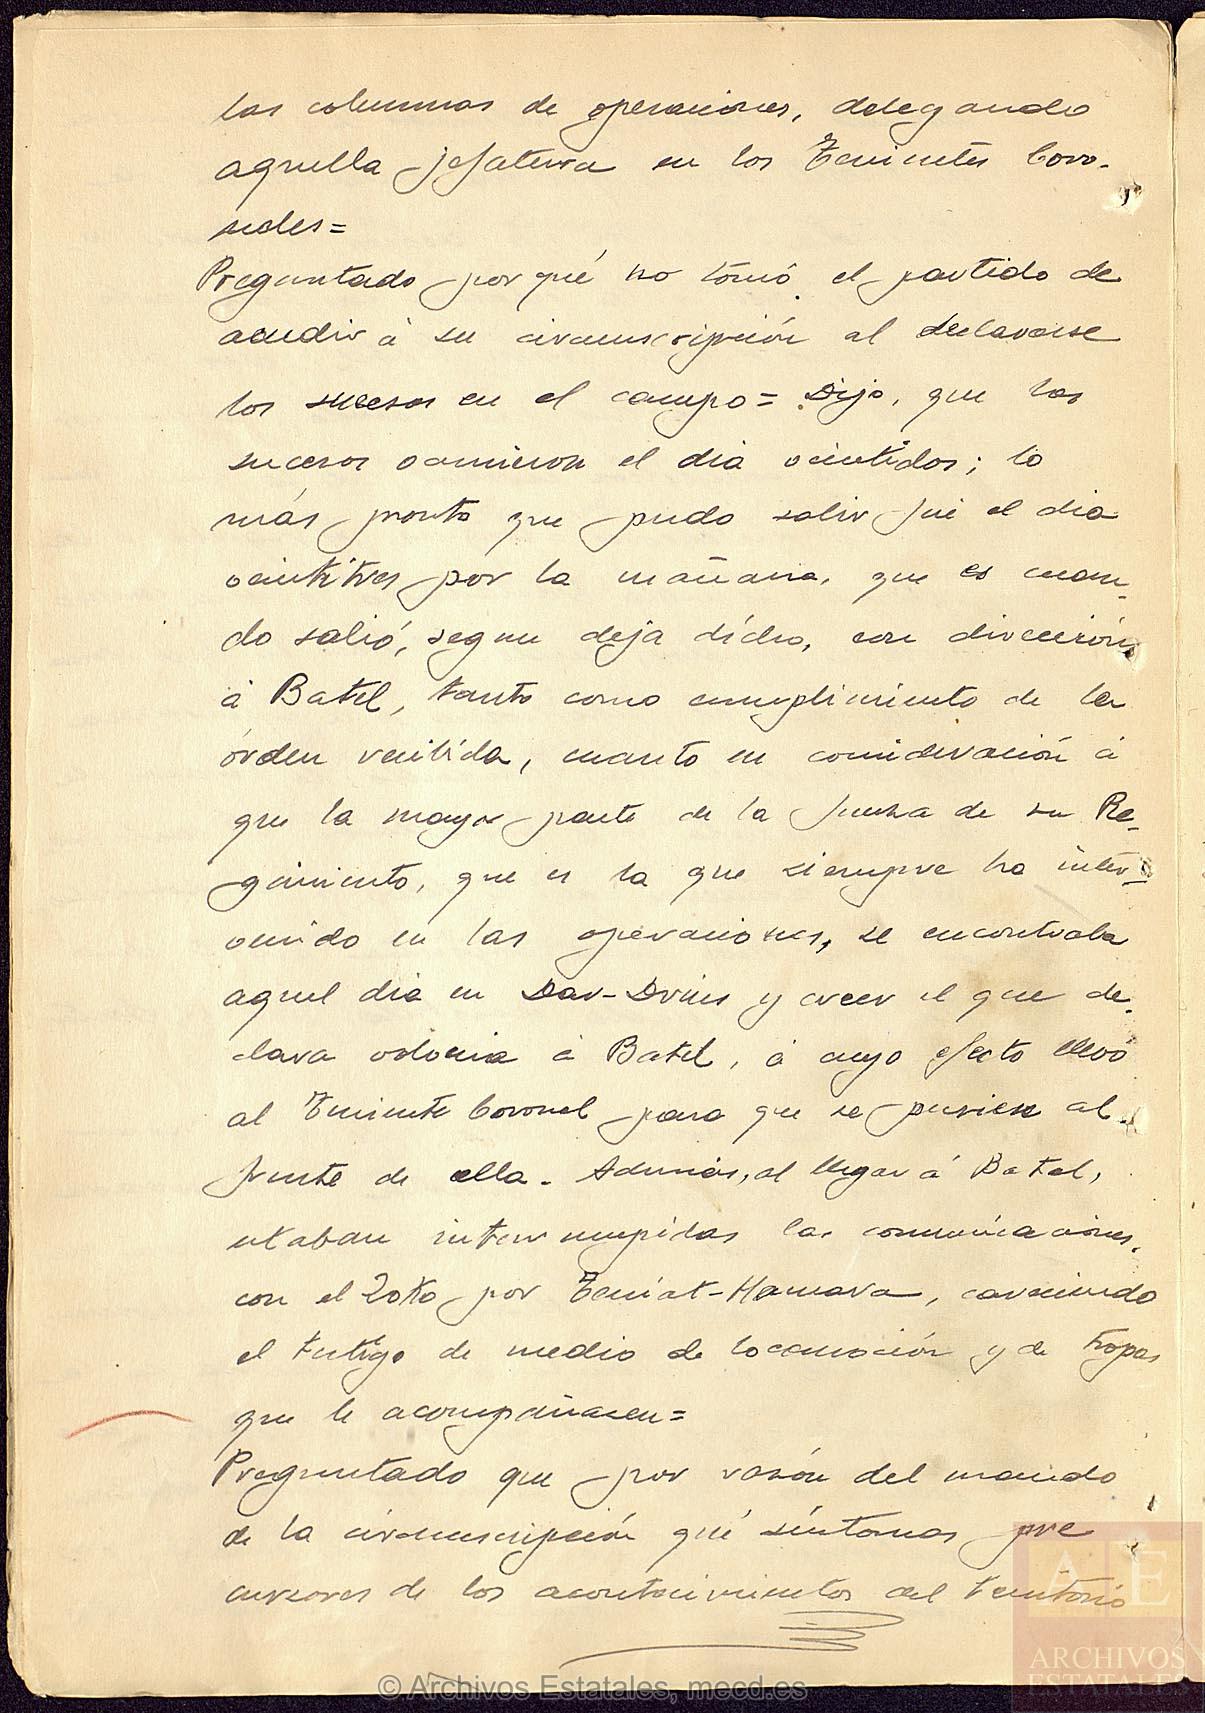 las columnas de operaciones, delegando
aquella jefatura en los Tenientes Coro-
neles=
Preguntado por qué no tomó el partido de
acudir á su circunscripción al declararse
los sucesos en el campo= Dijo, que los
sucesos ocurrieron el dia veintidos; lo
más pronto que pudo salir fué el dia
veintitres por la mañana, que es cuan-
do salió, segun deja dicho, con dirección
á Batel, tanto como cumplimiento de la
órden recibida, cuanto en consideración á
que la mayor parte de la fuerza de su Re-
gimiento, que es la que siempre ha inter-
venido en las operaciones, se encontraba
aquel dia en Dar-Drius y creer el que de-
clara volveria á Batel, á cuyo efecto llevó
al Teniente Coronel para que se pusiese al
frente de ella. Además, al llegar á Batel,
estaban interrumpidas las comunicaciones
con el Zoko por Teniat-Hamara, careciendo
el testigo de medio de locomoción y de tropas
que le acompañasen=
Preguntado que por razón del mando
de la circunscripción qué síntomas pre
cursores de los acontecimientos del territorio
© Archivos Estatales, mecd.es
AE
ARCHIVOS
ESTATALES